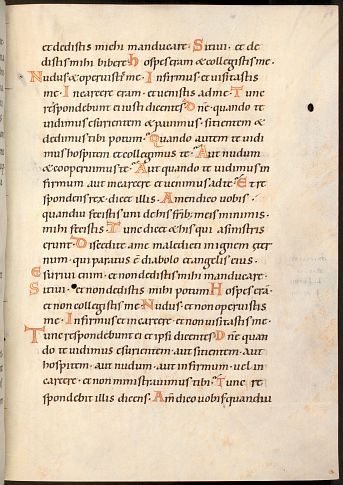 et dedistis michi manducare. Sitiui. et de
distis mihi bibere. Hospes eram & collegistis me.
Nudus & operuistis me. Infirmus et uisitastis
me. In carcere eram. et uenistis ad me. Tunc
respondebunt ei iusti dicentes. Dñe. quando te
uidimus esurientem & pauimus. sitientem &
dedimus tibi potum. Quando autem te uidi
mus hospitem et collegimus te. Aut nudum
& cooperuimus te. Aut quando te uidimus in
firmum aut in carcere et uenimus ad te. Et re
spondens rex. dicet illis. Amen dico uobis.
quamdiu fecistis uni de his frib; meis minimis.
mihi fecistis. Tunc dicet & his qui a sinistris
erunt. Discedite a me maledicti in ignem eter
num. qui paratus ē diabolo et angelis eius.
Esuriui enim. et non dedistis mihi manducare.
Sitiui. et non dedistis mihi potum. Hospes erā
et non collegistis me. Nudus. et non operuistis
me. Infirmus et in carcere. et non uisitastis me.
Tunc respondebunt ei et ipsi dicentes. Dñe quan
do te uidimus esurientem. aut sitientem. aut
hospitem. aut nudum. aut infirmum. uel in
carcere. et non ministrauimus tibi. Tunc re
spondebit illis dicens. Am̄ dico uobis. quamdiu